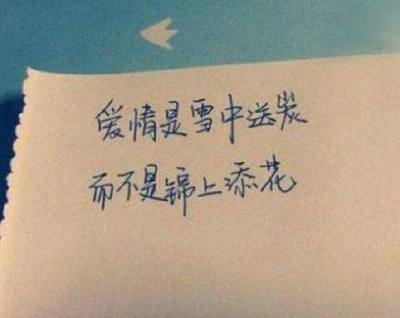 爱情是雪中送炭
而不是锦上添花